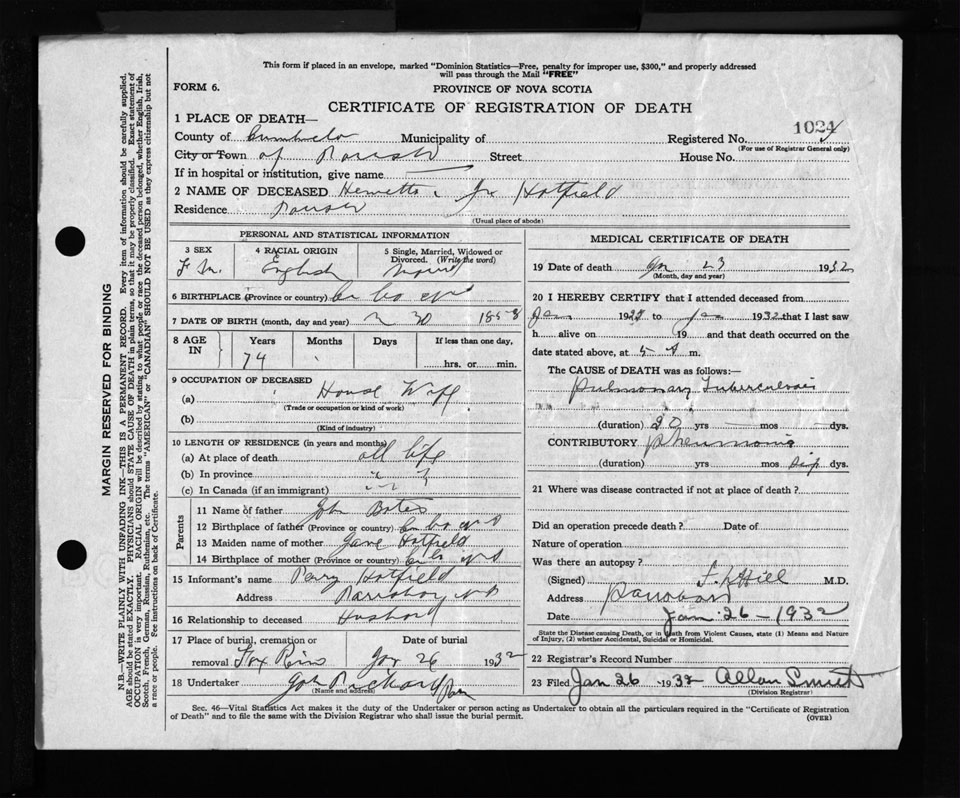 This form if placed in an envelope, marked "Dominion Statistics—Free, penalty for improper use, $300," and properly addressed
will pass through the Mail "FREE"
FORM 6.
PROVINCE OF NOVA SCOTIA
CERTIFICATE OF REGISTRATION OF DEATH
1024
1 PLACE OF DEATH—
County of Municipality of Registered No.
(For use of Registrar General only)
City or Town of Street House No.
If in hospital or institution, give name
2 NAME OF DECEASED Hatfield
Residence
(Usual place of abode)
PERSONAL AND STATISTICAL INFORMATION
3 SEX 4 RACIAL ORIGIN 5 Single, Married, Widowed or
Divorced. (Write the word)
English
6 BIRTHPLACE (Province or country)
7 DATE OF BIRTH (month, day and year) 30 1858
8 AGE IN Years Months Days If less than one day,
74 hrs. or min.
9 OCCUPATION OF DECEASED
(a) House Wife
(Trade or occupation or kind of work)
(b)
(Kind of industry)
10 LENGTH OF RESIDENCE (in years and months)
(a) At place of death all life
(b) In province
(c) In Canada (if an immigrant)
Parents
11 Name of father John
12 Birthplace of father (Province or country)
13 Maiden name of mother Jane Hatfield
14 Birthplace of mother (Province or country)
15 Informant's name Percy Hatfield
Address Parrsboro N S
16 Relationship to deceased Husband
17 Place of burial, cremation or Date of burial
removal Fox River Jan 26 1932
18 Undertaker John
(Name and address)
MEDICAL CERTIFICATE OF DEATH
19 Date of death Jan 23 1932
(Month, day and year)
20 I HEREBY CERTIFY that I attended deceased from
Jan 192 to Jan 1932 that I last saw
h alive on 19 and that death occurred on
date stated above, at 5 A m.
The CAUSE of DEATH was as follows:—
Pulmonary Tuberculosis
(duration) 20 yrs mos dys.
CONTRIBUTORY Pneumonia
(duration) yrs mos dys.
21 Where was disease contracted if not at place of death?
Did an operation precede death? Date of
Nature of operation
Was there an autopsy?
(Signed) Hill M.D.
Address Parrsboro
Date Jan 26—1932
State the Disease causing Death, or in death from Violent Causes, state (1) Means and Nature
of Injury, (2) whether Accidental, Suicidal or Homicidal.
22 Registrar's Record Number
23 Filed Jan 26 1932 Allan Smith
(Division Registrar)
Sec. 46—Vital Statistics Act makes it the duty of the Undertaker or person acting as Undertaker to obtain all the particulars required in the "Certificate of Registration
of Death" and to file the same with the Division Registrar who shall issue the burial permit.
(OVER)
MARGIN RESERVED FOR BINDING
N.B.—WRITE PLAINLY WITH UNFADING INK—THIS IS A PERMANENT RECORD. Every item of information should be carefully supplied.
AGE should be stated EXACTLY. PHYSICIANS should STATE CAUSE OF DEATH in plain terms, so that it may be properly classified. Exact statement of
OCCUPATION is very important. RACIAL ORIGIN will be described by stating to what people or race the deceased person belonged, whether English, Irish,
Scotch, French, German, Russian, Ruthenian, etc. The terms "AMERICAN" or "CANADIAN" SHOULD NOT BE USED as they express citizenship but not
a race or people. See instructions on back of Certificate.